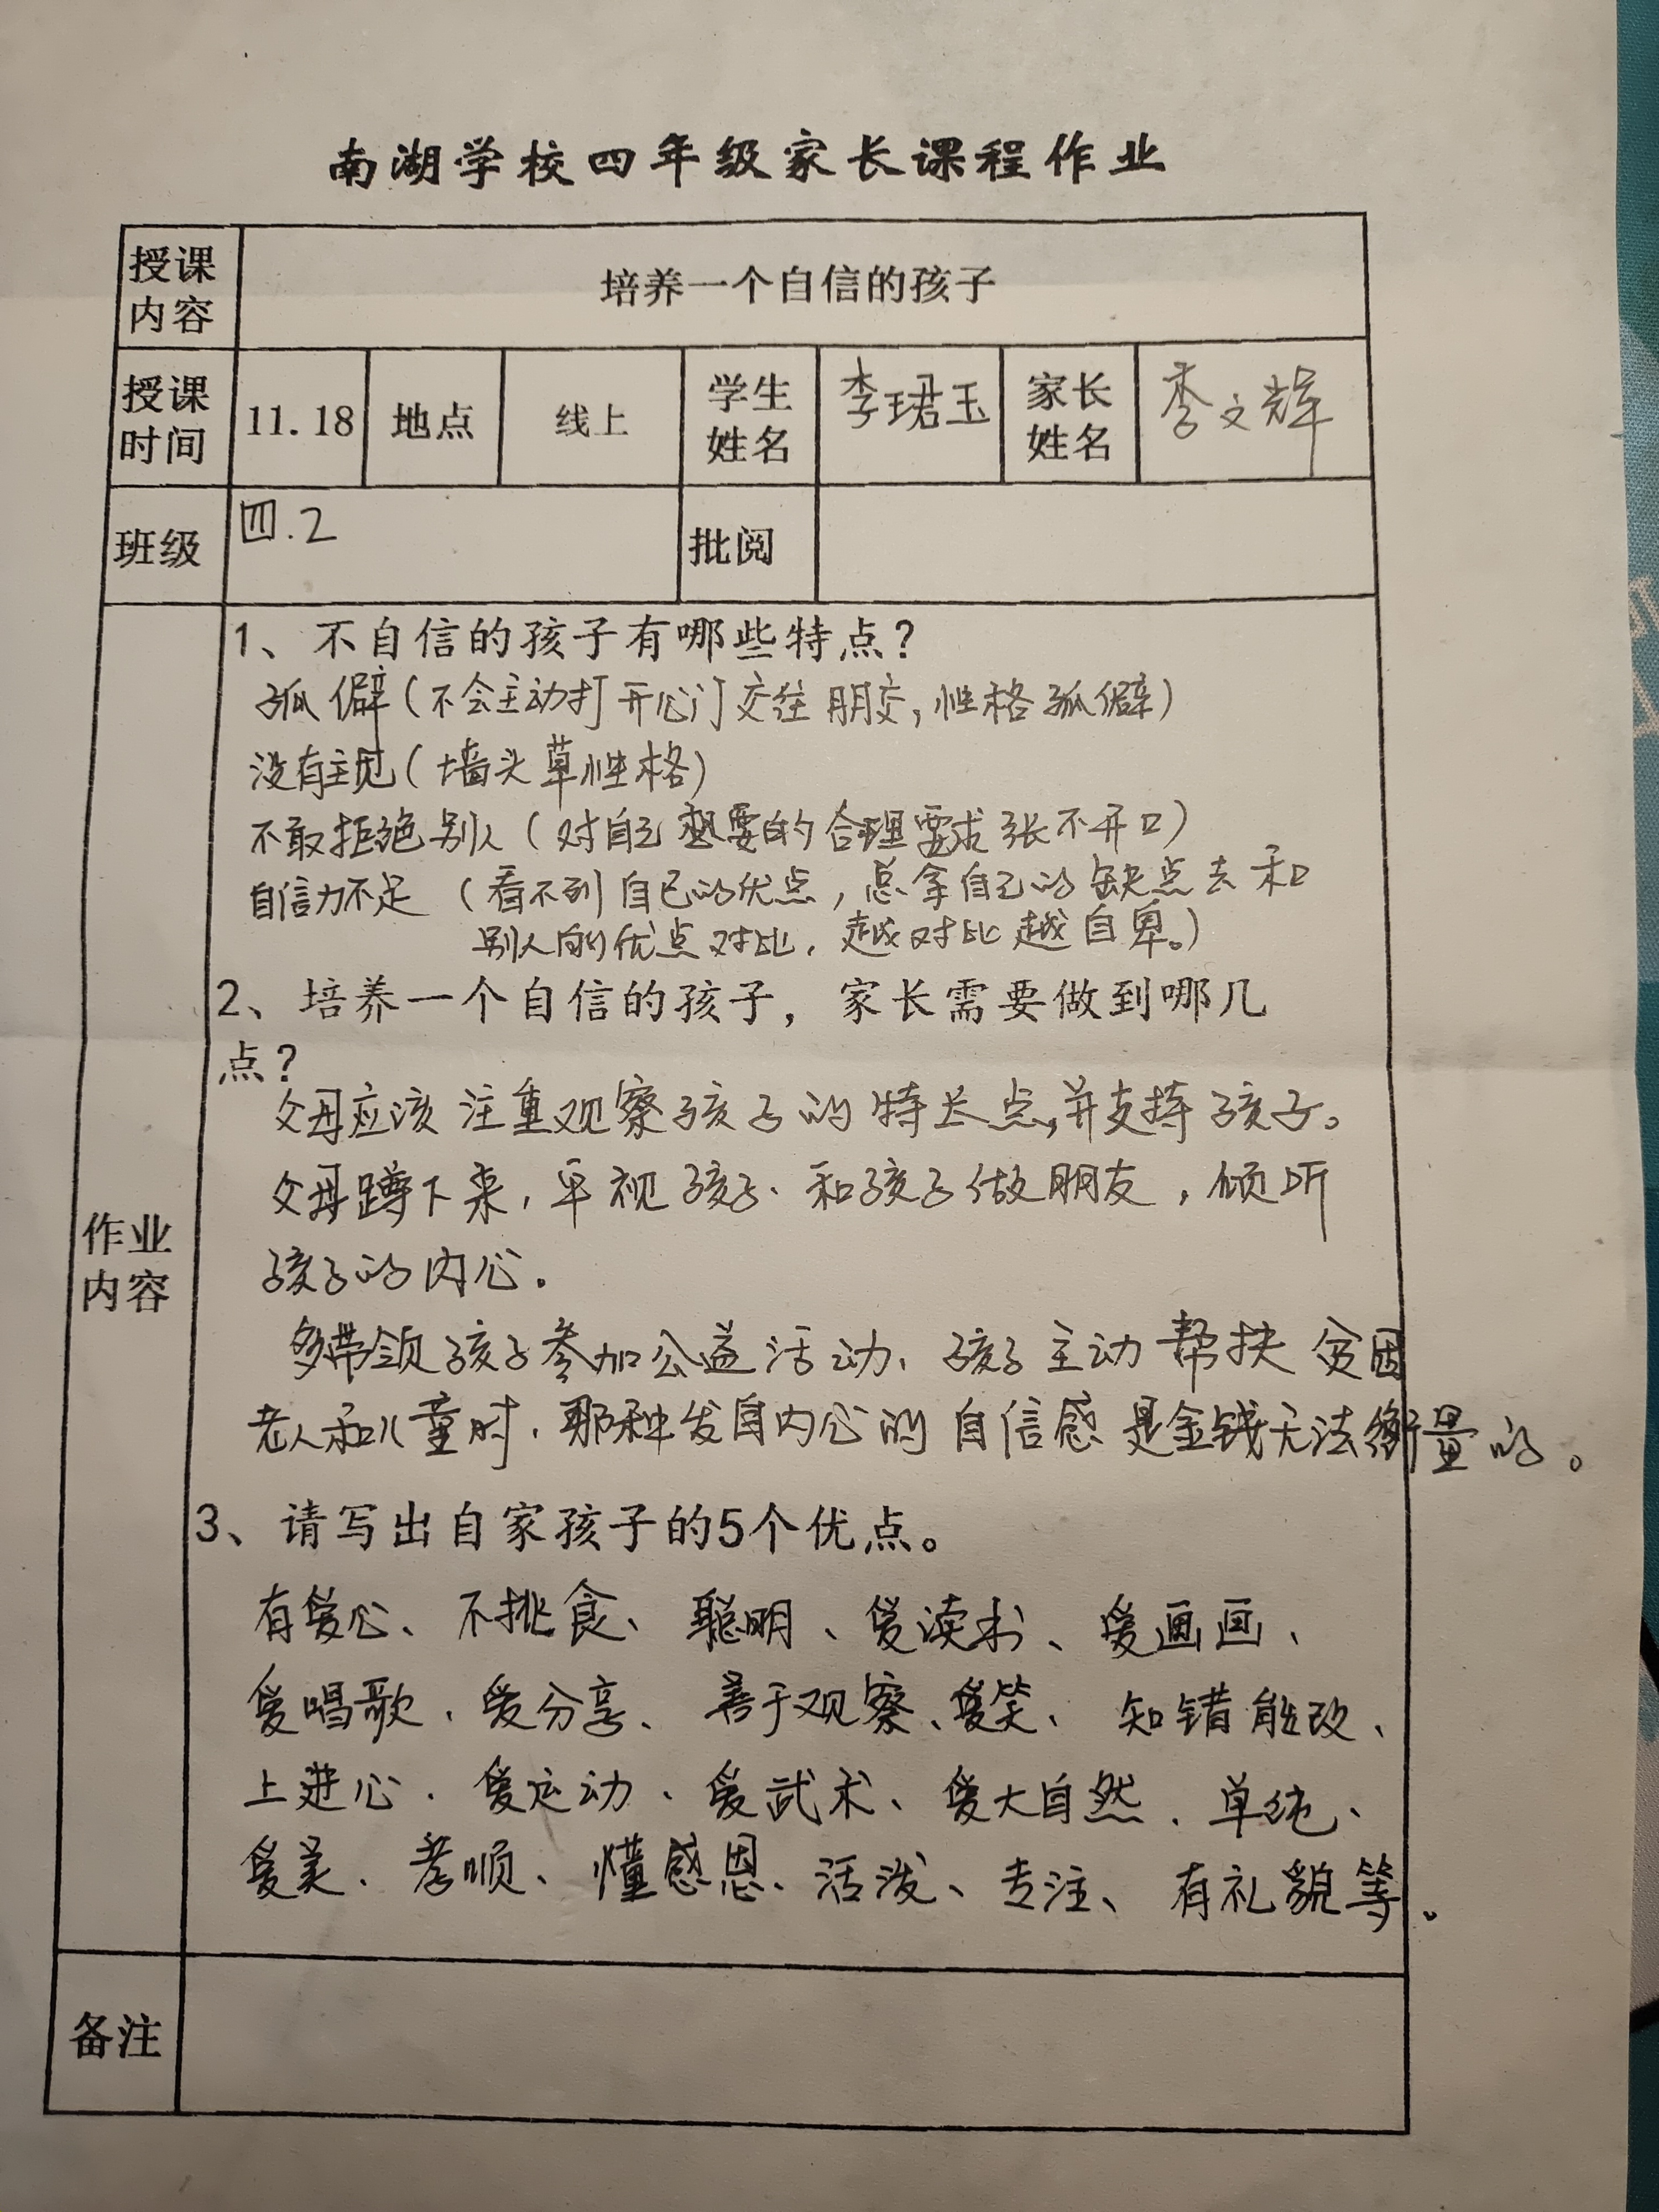 南湖学校四年级家长课程作业
授课内容
培养一个自信的孩子
授课时间
11.18
地点
线上
学生姓名
李珺玉
家长姓名
李文辉
班级
四.2
批阅
作业内容
1、不自信的孩子有哪些特点？
孤僻（不会主动打开心门交往朋交，性格孤僻）
没有主见（墙头草性格）
不敢拒绝别人（对自己想要的合理需求张不开口）
自信力不足（看不到自己的优点，总拿自己的缺点去和
别人的优点对比，越对比越自卑。）
2、培养一个自信的孩子，家长需要做到哪几
点？
父母应该注重观察孩子的特长点，并支持孩子。
父母蹲下来，平视孩子、和孩子做朋友，倾听
孩子的内心。
多带领孩子参加公益活动、孩子主动帮扶贫困
老人和儿童时，那种发自内心的自信感是金钱无法衡量的。
3、请写出自家孩子的5个优点。
有爱心、不挑食、聪明、爱读书、爱画画、
爱唱歌、爱分享、善于观察、爱笑、知错能改、
上进心、爱运动、爱武术、爱大自然、单纯、
爱美、孝顺、懂感恩、活泼、专注、有礼貌等。
备注